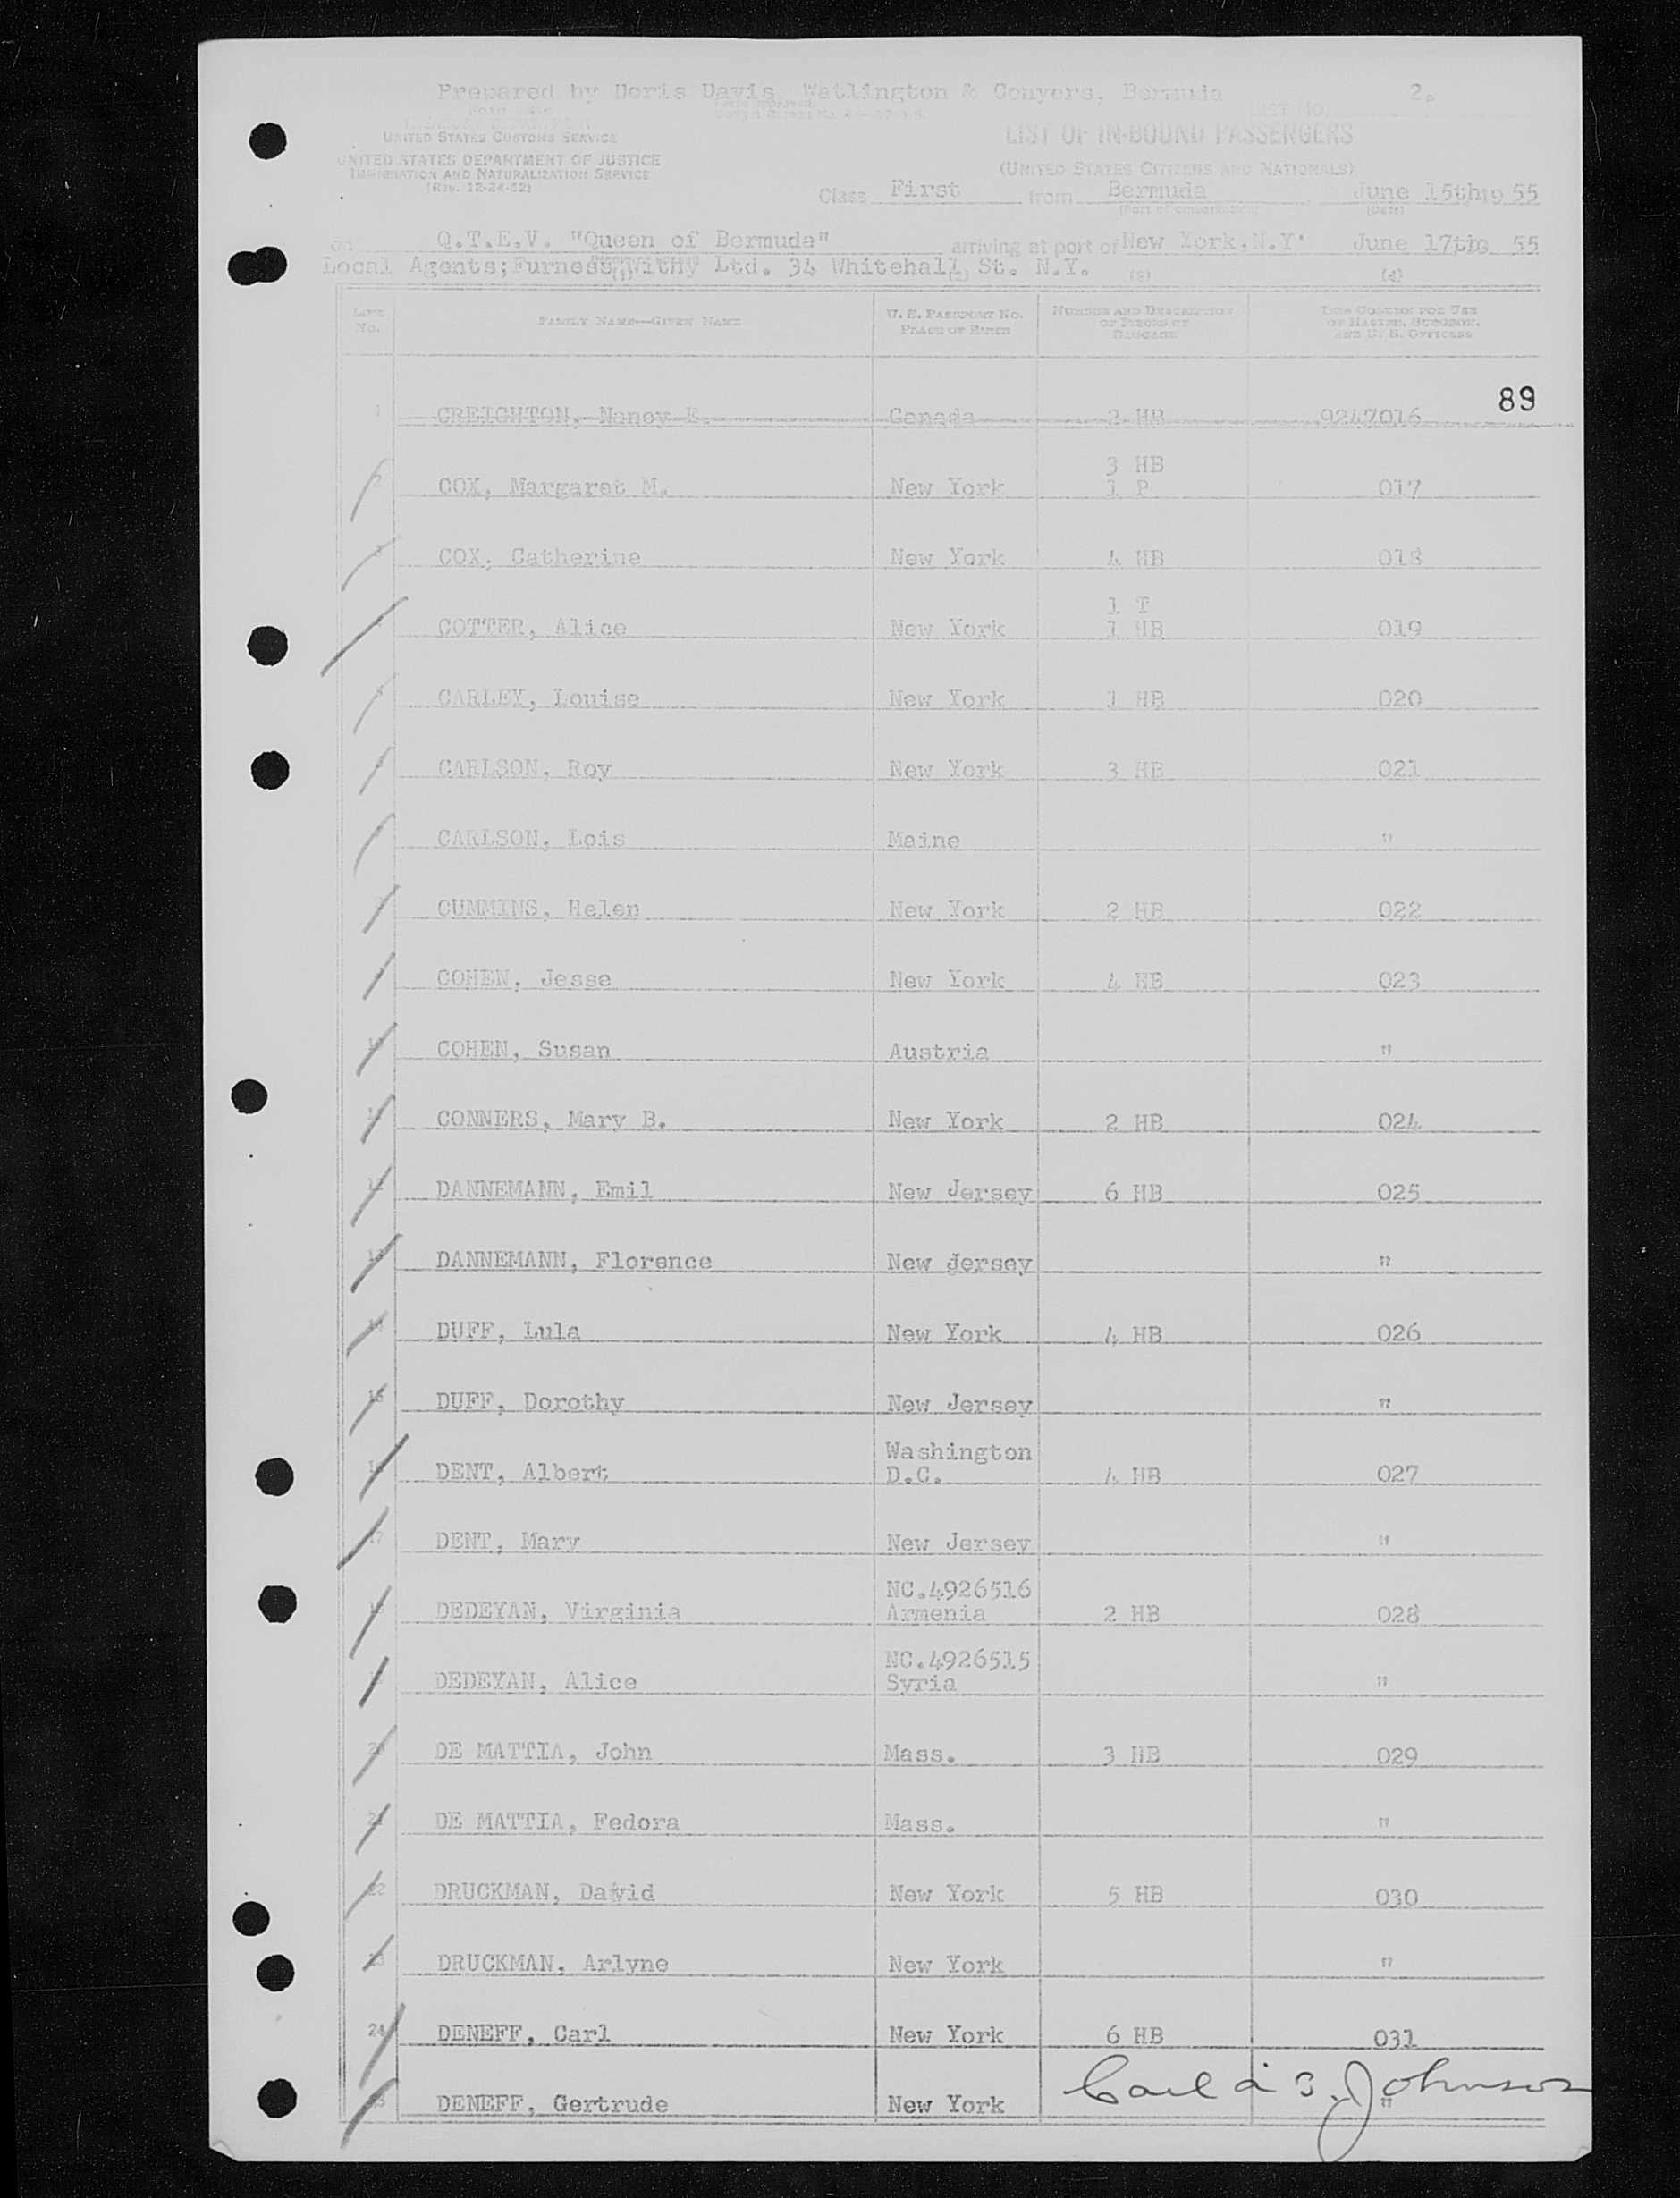 Prepared by Doris Davis, Watlington & Conyers, Bermuda 2.
LIST NO.
UNITED STATES CUSTOMS SERVICE
UNITED STATES DEPARTMENT OF JUSTICE
IMMIGRATION AND NATURALIZATION SERVICE
(Rev. 12-24-52)
LIST OF IN-BOUND PASSENGERS
(UNITED STATES CITIZENS AND NATIONALS)
Class First from Bermuda, June 15th, 19 55
(Port of embarkation) (Date)
on Q.T.E.V. "Queen of Bermuda" arriving at port of New York. N.Y. June 17th, 55
Local Agents; Furness Withy Ltd. 34 Whitehall St. N.Y.
(1) (2) (3) (4)
LINE No. FAMILY NAME—GIVEN NAME U. S. PASSPORT NO. PLACE OF BIRTH NUMBER AND DESCRIPTION OF PIECES OF BAGGAGE THIS COLUMN FOR USE OF MASTER, SURGEON, AND U. S. OFFICERS
89
1 CREIGHTON, Nancy E. Canada 2 HB 9247016
2 COX, Margaret M. New York 3 HB 1 P 017
3 COX, Catherine New York 4 HB 018
COTTER, Alice New York 1 T 1 HB 019
5 CARLEY, Louise New York 1 HB 020
6 CARLSON, Roy New York 3 HB 021
CARLSON, Lois Maine "
CUMMINS, Helen New York 2 HB 022
COHEN, Jesse New York 4 HB 023
10 COHEN, Susan Austria "
11 CONNERS, Mary B. New York 2 HB 024
12 DANNEMANN, Emil New Jersey 6 HB 025
13 DANNEMANN, Florence New Jersey "
14 DUFF, Lula New York 4 HB 026
15 DUFF, Dorothy New Jersey "
16 DENT, Albert Washington D.C. 4 HB 027
17 DENT, Mary New Jersey "
18 DEDEYAN, Virginia NC.4926516 Armenia 2 HB 028
DEDEYAN, Alice NC.4926515 Syria "
20 DE MATTIA, John Mass. 3 HB 029
21 DE MATTIA, Fedora Mass. "
22 DRUCKMAN, David New York 5 HB 030
23 DRUCKMAN, Arlyne New York "
24 DENEFF, Carl New York 6 HB 031
25 DENEFF, Gertrude New York "
Johnson